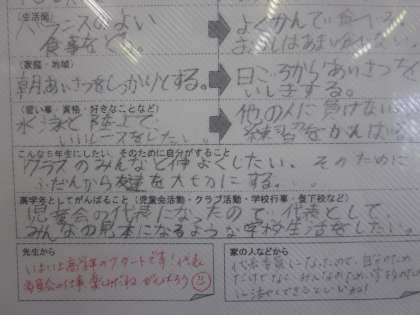 (生活面)
バランスのよい
食事をとる。
よくかんで食べる
(家庭・地域)
朝あいさつをしっかりとする。
日ごろからあいさつを
いしきする。
(習い事・資格・好きなことなど)
水泳と陸上で、
いいレースをしたい。
他の人に負けない
練習をがんばる。
こんな5年生にしたい、そのために自分がすること
クラスのみんなと仲よくしたい。そのために
ふだんから友達を大切にする。
高学年としてがんばること(児童会活動・クラブ活動・学校行事・登下校など)
児童会の代表になったので、代表として
みんなの見本になるような学校生活をしたい。
先生から
いよいよ高学年のスタートです!代表
委員会の仕事 楽しみだね がんばろう
家の人などから
代表委員になったので、自分のため
だけでなく、みんなのため、学校のため
に活やくできるといいね!